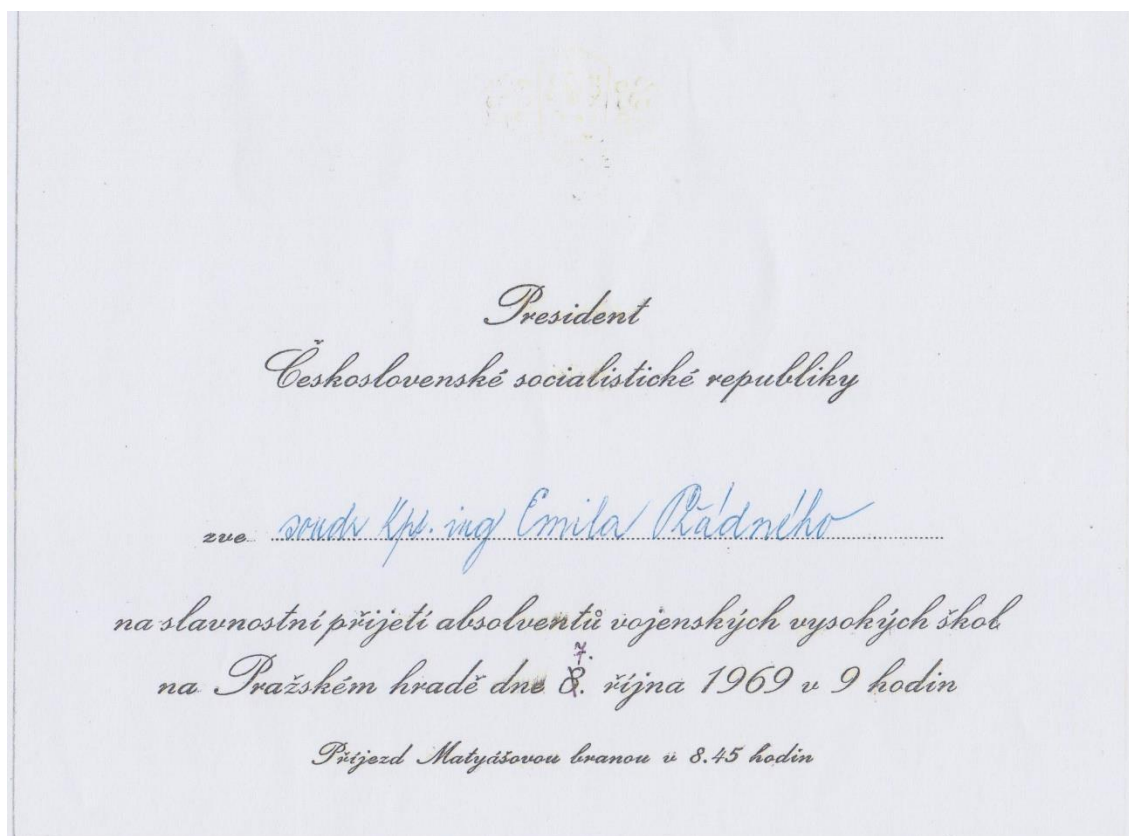 President
Československé socialistické republiky
zve soudr kpt. ing Emila Řádného
na slavnostní přijetí absolventů vojenských vysokých škol
7.
na Pražském hradě dne 8. října 1969 v 9 hodin
Příjezd Matyášovou branou v 8.45 hodin